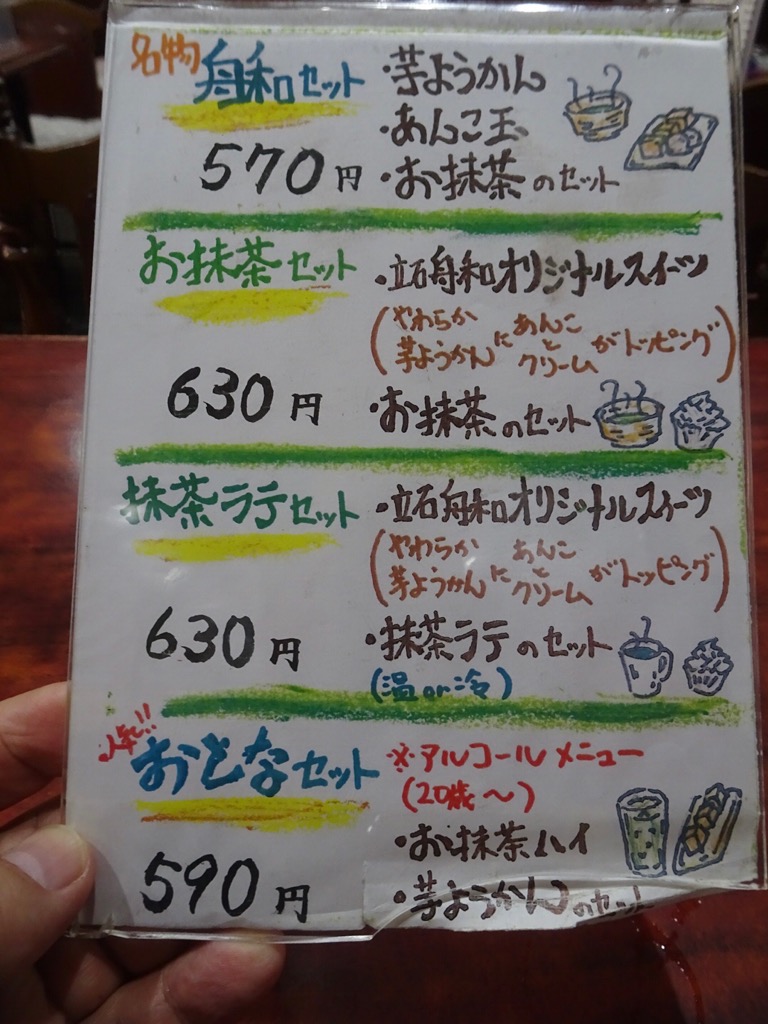 名物 舟和セット
570円
・芋ようかん
・あんこ玉
・お抹茶のセット
お抹茶セット
630円
・立石舟和オリジナルスイーツ
(やわらか芋ようかんにあんことクリームがトッピング)
・お抹茶のセット
抹茶ラテセット
630円
・立石舟和オリジナルスイーツ
(やわらか芋ようかんにあんことクリームがトッピング)
・抹茶ラテのセット
(温or冷)
おとなセット
590円
※アルコールメニュー
(20歳〜)
・お抹茶ハイ
・芋ようかんのセット